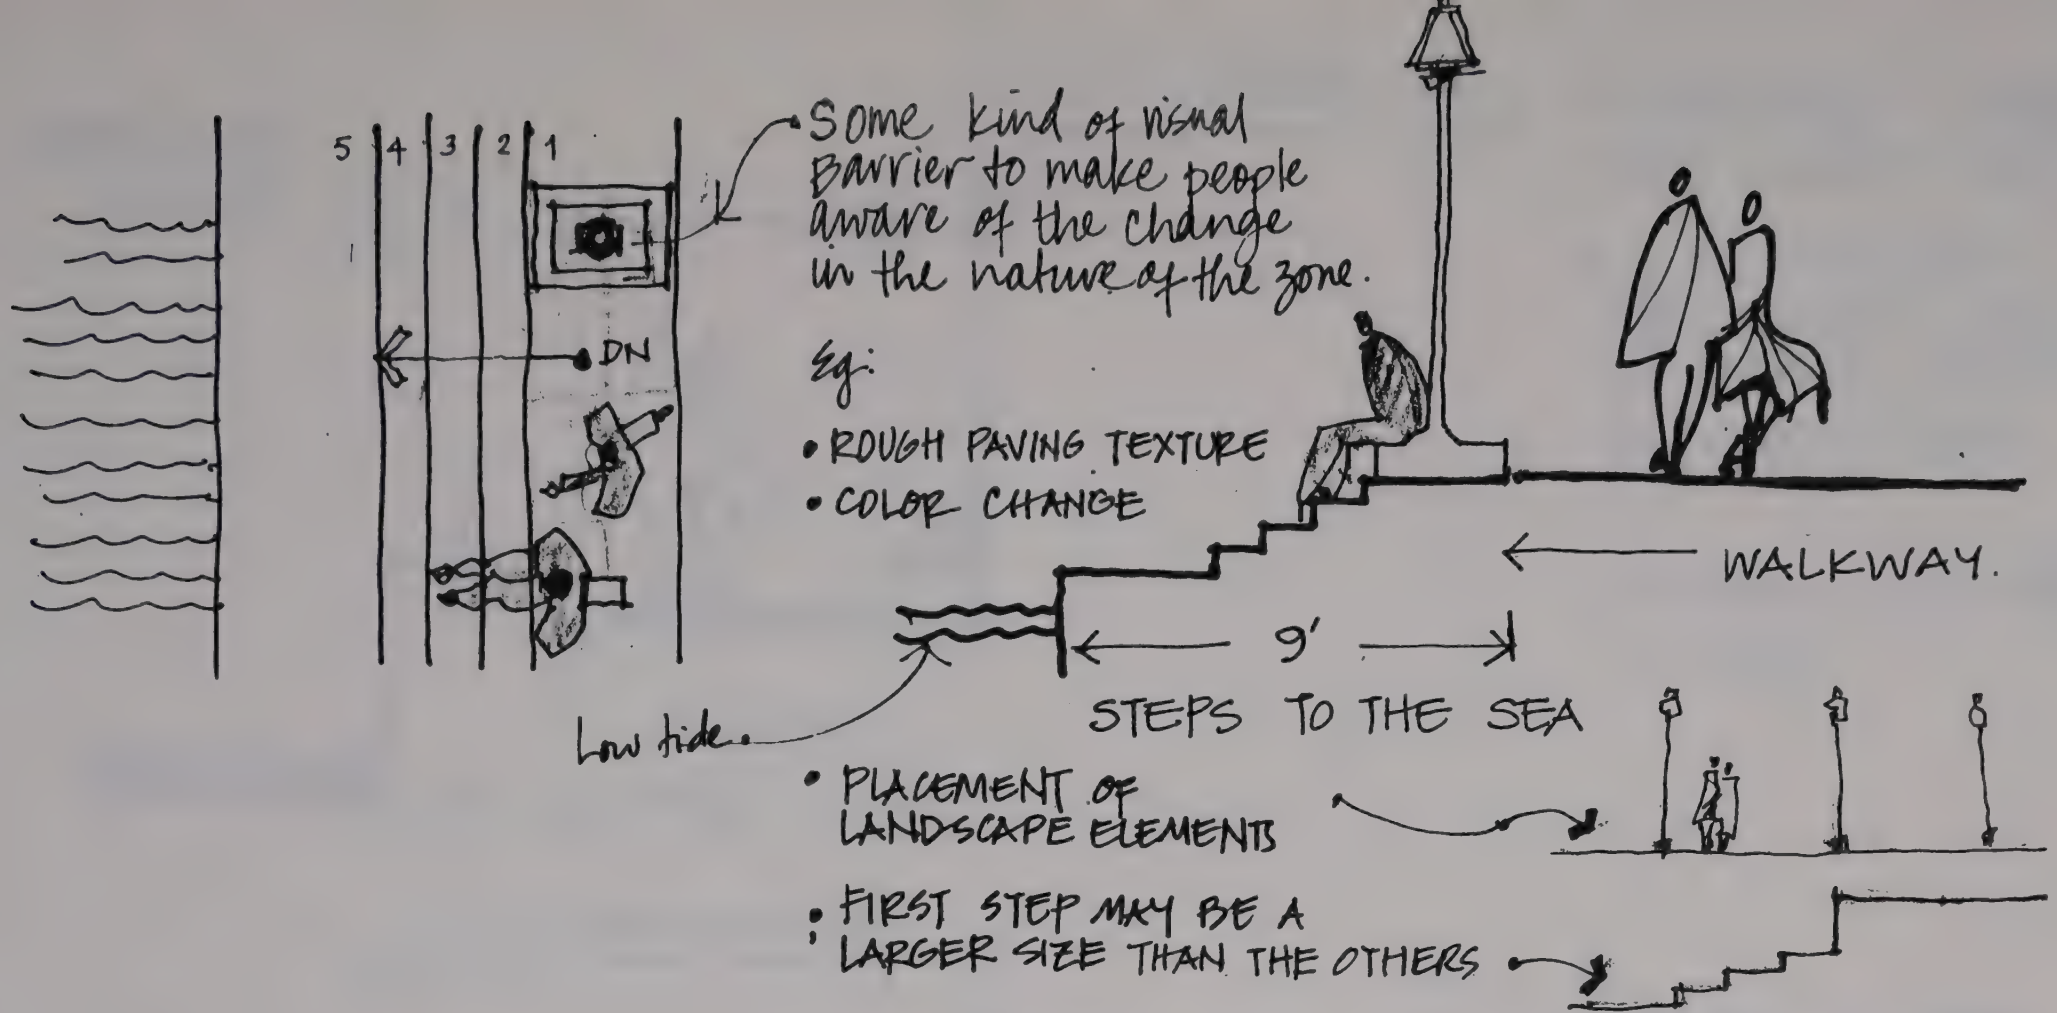 5 4 3 2 1
Some kind of visual
Barrier to make people
aware of the change
in the nature of the zone.
DN
Eg:
• ROUGH PAVING TEXTURE
• COLOR CHANGE
WALKWAY.
9'
STEPS TO THE SEA
Low tide.
• PLACEMENT OF
LANDSCAPE ELEMENTS
• FIRST STEP MAY BE A
LARGER SIZE THAN THE OTHERS